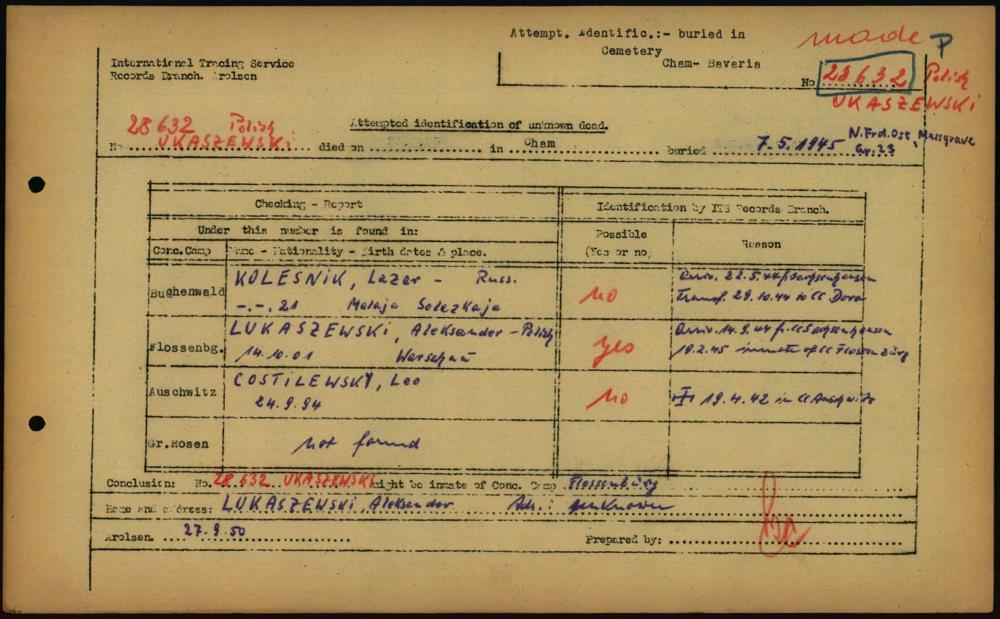 Attempt. Identific.:- buried in
Cemetery
Cham- Bavaria
made P
No. 28632 Polish
UKASZEWSKI
International Tracing Service
Records Branch. Arolsen
Attempted identification of unknown dead.
28632 Polish
No UKASZEWSKI died on in Cham buried 7.5.1945 N.Frd.Ost, Massgrave
Gr.23
Checking - Report
Identification by ITS Records Branch.
Under this number is found in:
Possible
(Yes or no)
Reason
Conc.Camp Name - Nationality - Birth dates & place.
Buchenwald KOLESNIK, Lazer - Russ.
-.-. 21 Malaja Solezkaja
no
Arriv. 22.5.44 f. Sachsenhausen
Transf. 29.10.44 to CC Dora
Flossenbg. LUKASZEWSKI, Aleksander - Polish
14.10.01 Warschau
yes
Arriv. 14.9.44 f. CC Sachsenhausen
19.2.45 inmate of CC Flossenbürg
Auschwitz COSTILEWSKY, Leo
24.9.94
no
19.4.42 in CC Auschwitz
Gr.Rosen not found
Conclusion: No. 28.632 UKASZEWSKI might be inmate of Conc. Camp Flossenbürg
Name and address: LUKASZEWSKI, Aleksander Adr.: unknown
Arolsen. 27.9.50 Prepared by: